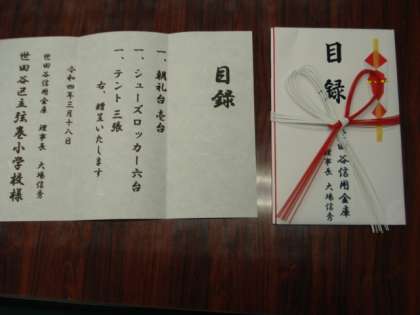 目録
一、朝礼台 壱台
一、シューズロッカー 六台
一、テント 三張
右、贈呈いたします
令和四年三月十八日
世田谷信用金庫 理事長 大場信秀
世田谷区立弦巻小学校様
目録
世田谷信用金庫
理事長 大場信秀